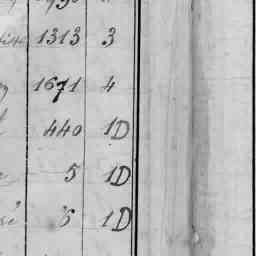 1313 3
1671 4
440 1D
5 1D
5 1D